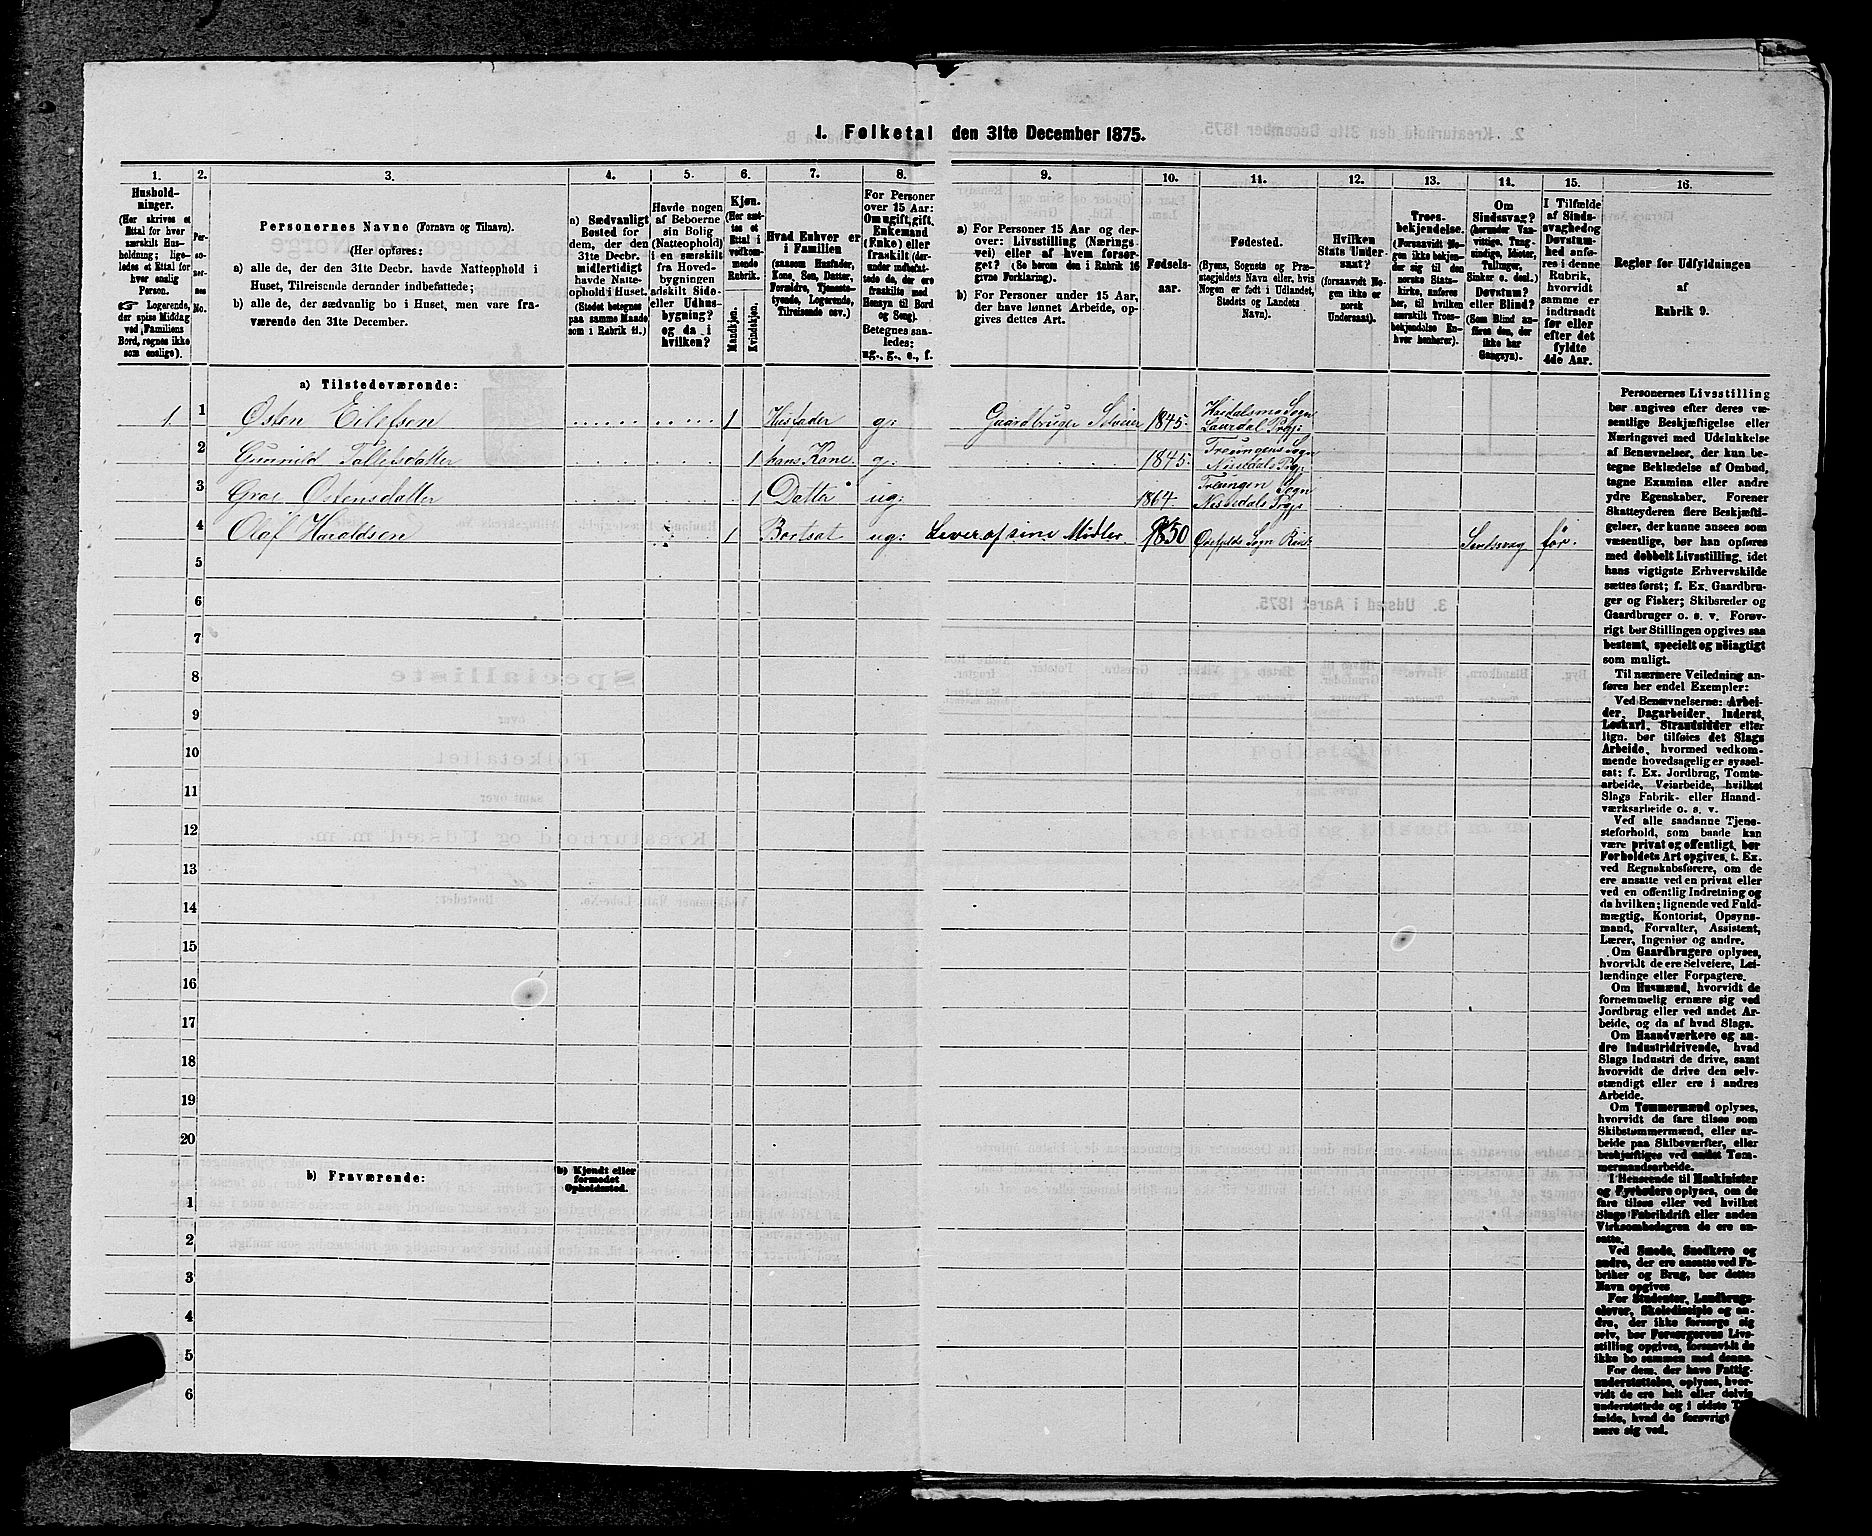 1. Folketal den 31te December 1875.
1.
Hushold-
ninger.
(Her skrives et
Ettal for hver
særskilt Hus-
holdning; lige-
ledes et Ettal for
hver enslig
Person.
☞ Logerende,
der spise Middag
ved Familiens
Bord, regnes ikke
som enslige).
2.
Per-
so-
ner-
nes
No.
3.
Personernes Navne (Fornavn og Tilnavn).
(Her opføres:
a) alle de, der den 31te Decbr. havde Natteophold i
Huset, Tilreisende derunder indbefattede;
b) alle de, der sædvanlig bo i Huset, men vare fra-
værende den 31te December.
4.
a) Sædvanligt
Bosted for
dem, der den
31te Decbr.
midlertidigt
havde Natte-
ophold i Huset.
(Stedet betegnes
paa samme Maade
som i Rubrik 11.)
5.
Havde nogen
af Beboerne
sin Bolig
(Natteophold)
i en særskilt
fra Hoved-
bygningen
adskilt Side-
eller Udhus-
bygning?
og da i
hvilken?
6.
Kjøn.
(Her sæt-
tes et
Ettal i
vedkom-
mende
Rubrik.
Mandkjøn.
Kvindekjøn.
7.
Hvad Enhver er
i Familien
(saasom Husfader,
Kone, Søn, Datter,
Forældre, Tjeneste-
tyende, Logerende,
Tilreisende osv.)
8.
For Personer
over 15 Aar:
Om ugift, gift,
Enkemand
(Enke) eller
fraskilt (der-
under indbefat-
tede de, der ere
fraskilte med
Hensyn til Bord
og Seng).
Betegnes saa-
ledes:
ug., g., e., f.
9.
a) For Personer 15 Aar og der-
over: Livsstilling (Nærings-
vei) eller af hvem forsør-
get? (Se herom den i Rubrik 16
givne Forklaring).
b) For Personer under 15 Aar,
der have lønnet Arbeide, op-
gives dettes Art.
10.
Fødsels-
aar.
11.
Fødested.
(Byens, Sognets og Præ-
stegjeldets Navn eller, hvis
Nogen er født i Udlandet,
Stedets og Landets
Navn).
12.
Hvilken
Stats Under-
saat?
(forsaavidt No-
gen ikke er
norsk
Undersaat).
13.
Troes-
bekjendelse.
(Forsaavidt No-
gen ikke bekjen-
der sig til den
norske Stats-
kirke, anføres
her, til hvilken
særskilt Troes-
bekjendelse En-
hver henhører).
14.
Om
Sindssvag?
(herunder Van-
vittige, Tung-
sindige, Idioter,
Tullinger,
Sinker o. desl.)
Døvstum?
eller Blind?
(Som Blind an-
føres den, der
ikke har
Gangsyn).
15.
I Tilfælde
af Sinds-
svaghed og
Døvstum-
hed anfø-
res i denne
Rubrik,
hvorvidt
samme er
indtraadt
før eller
efter det
fyldte
4de Aar.
16.
Regler for Udfyldningen
af
Rubrik 9.
a) Tilstedeværende:
1 1 Østen Eilefsen 1 Husfader g: Gaardbruger Selveier 1845. Sogn
Laurdal Prgj:
2 Gunnild Tallefsdatter 1 hans Kone g: 1845. Treungens Sogn
Nissedals Prgj:
3 Groe Østensdatter 1 Datter ug: 1864 Treungen Sogn
Nissedals Prgj:
4 Olaf Haraldsen 1 Bortsat ug: Lever af sine Midler 1830 Sogn Sindssvag før.
5
6
7
8
9
10
11
12
13
14
15
16
17
18
19
20
b) Fraværende:
b) Kjendt eller
formodet
Opholdssted.
1
2
3
4
5
6
Personernes Livsstilling
bør angives efter deres væ-
sentlige Beskjæftigelse eller
Næringsvei med Udelukkelse
af Benævnelser, der kun be-
tegne Beklædelse af Ombud,
tagne Examina eller andre
ydre Egenskaber. Forener
Skatteyderen flere Beskjæfti-
gelser, der kunne ansees som
væsentlige, bør han opføres
med dobbelt Livsstilling, idet
hans vigtigste Erhvervskilde
sættes først; f. Ex. Gaardbru-
ger og Fisker; Skibsreder og
Gaardbruger o. s. v. Forøv-
rigt bør Stillingen opgives saa
bestemt, specielt og nöiagtigt
som muligt.
Til nærmere Veiledning an-
føres her endel Exempler:
Ved Benævnelserne: Arbei-
der, Dagarbeider, Inderst,
Løskarl, Strandsidder eller
lign. bør tilføies det Slags
Arbeide, hvormed vedkom-
mende hovedsagelig er syssel-
sat; f. Ex. Jordbrug, Tomte-
arbeide, Veiarbeide, hvilket
Slags Fabrik- eller Haand-
værksarbeide o. s. v.
Ved alle saadanne Tjene-
steforhold, som baade kan
være privat og offentligt, bør
Forholdets Art opgives, t. Ex.
ved Regnskabsførere, om de
ere ansatte ved en privat eller
ved en offentlig Indretning og
da hvilken; lignende ved Fuld-
mægtig, Kontorist, Opsyns-
mand, Forvalter, Assistent,
Lærer, Ingeniør og andre.
Om Gaardbrugere oplyses,
hvorvidt de ere Selveiere, Lei-
lændinge eller Forpagtere.
Om Husmænd, hvorvidt de
fornemmelig ernære sig ved
Jordbrug eller ved andet Ar-
beide, og da af hvad Slags.
Om Haandværkere og an-
dre Industridrivende, hvad
Slags Industri de drive, samt
hvorvidt de drive den selv-
stændigt eller ere i andres
Arbeide.
Om Tømmermænd oplyses,
hvorvidt de fare tilsøs som
Skibstømmermænd, eller ar-
beide paa Skibsværfter, eller
beskjæftiges ved andet Tøm-
mermandsarbeide.
I Henseende til Maskinister
og Fyrbødere oplyses, om de
fare tilsøs eller ved hvilket
Slags Fabrikdrift eller anden
Virksomhedsgren de ere an-
satte.
Ved Smede, Snedkere og
andre, der ere ansatte ved Fa-
briker og Brug, bør dettes
Navn opgives
For Studenter, Landbrugs-
elever, Skoledisciple og an-
dre, der ikke forsørge sig
selv, bør Forsørgerens Livs-
stilling opgives, forsaavidt de
ikke bo sammen med denne.
For dem, der have Fattig-
understøttelse, oplyses, hvor-
vidt de ere helt eller delvis
understøttede og i sidste
fælde, hvad de forøvrigt
nære sig ved.